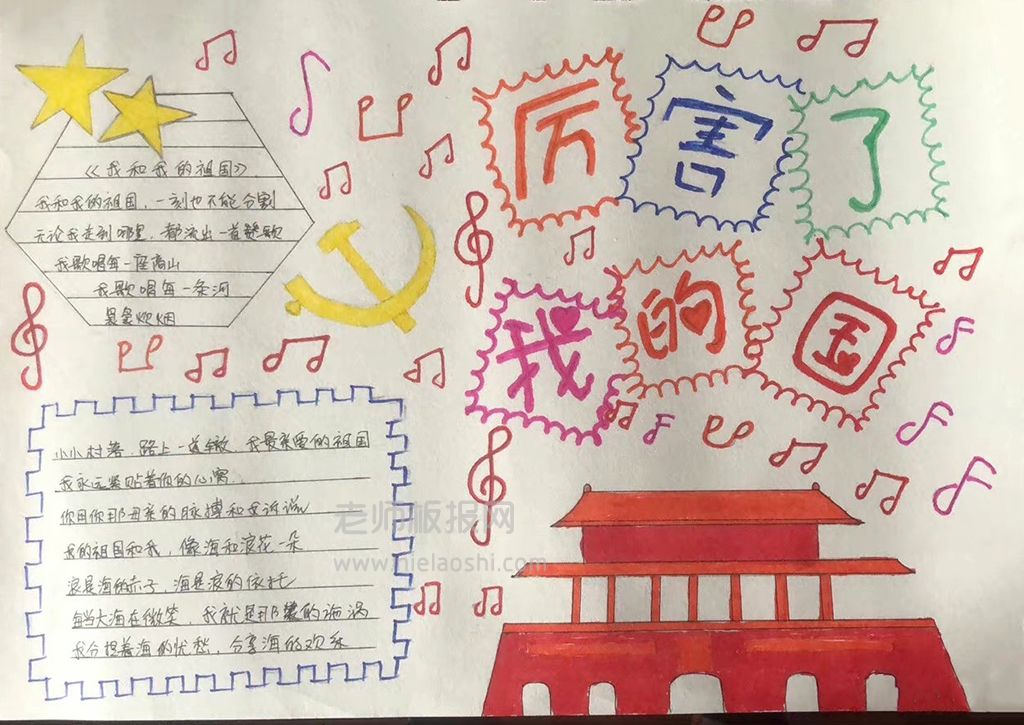 厉害了
我的国
《我和我的祖国》
我和我的祖国,一刻也不能分割
无论我走到哪里,都流出一首赞歌
我歌唱每一座高山
我歌唱每一条河
袅袅炊烟
小小村落,路上一道辙 我最亲爱的祖国
我永远紧贴着你的心窝
你用你那母亲的脉搏和我诉说
我的祖国和我,像海和浪花一朵
浪是海的赤子,海是浪的依托
每当大海在微笑,我就是那的涡
我分担着海的忧愁,分享海的欢乐
老师板报网
www.nielaoshi.com